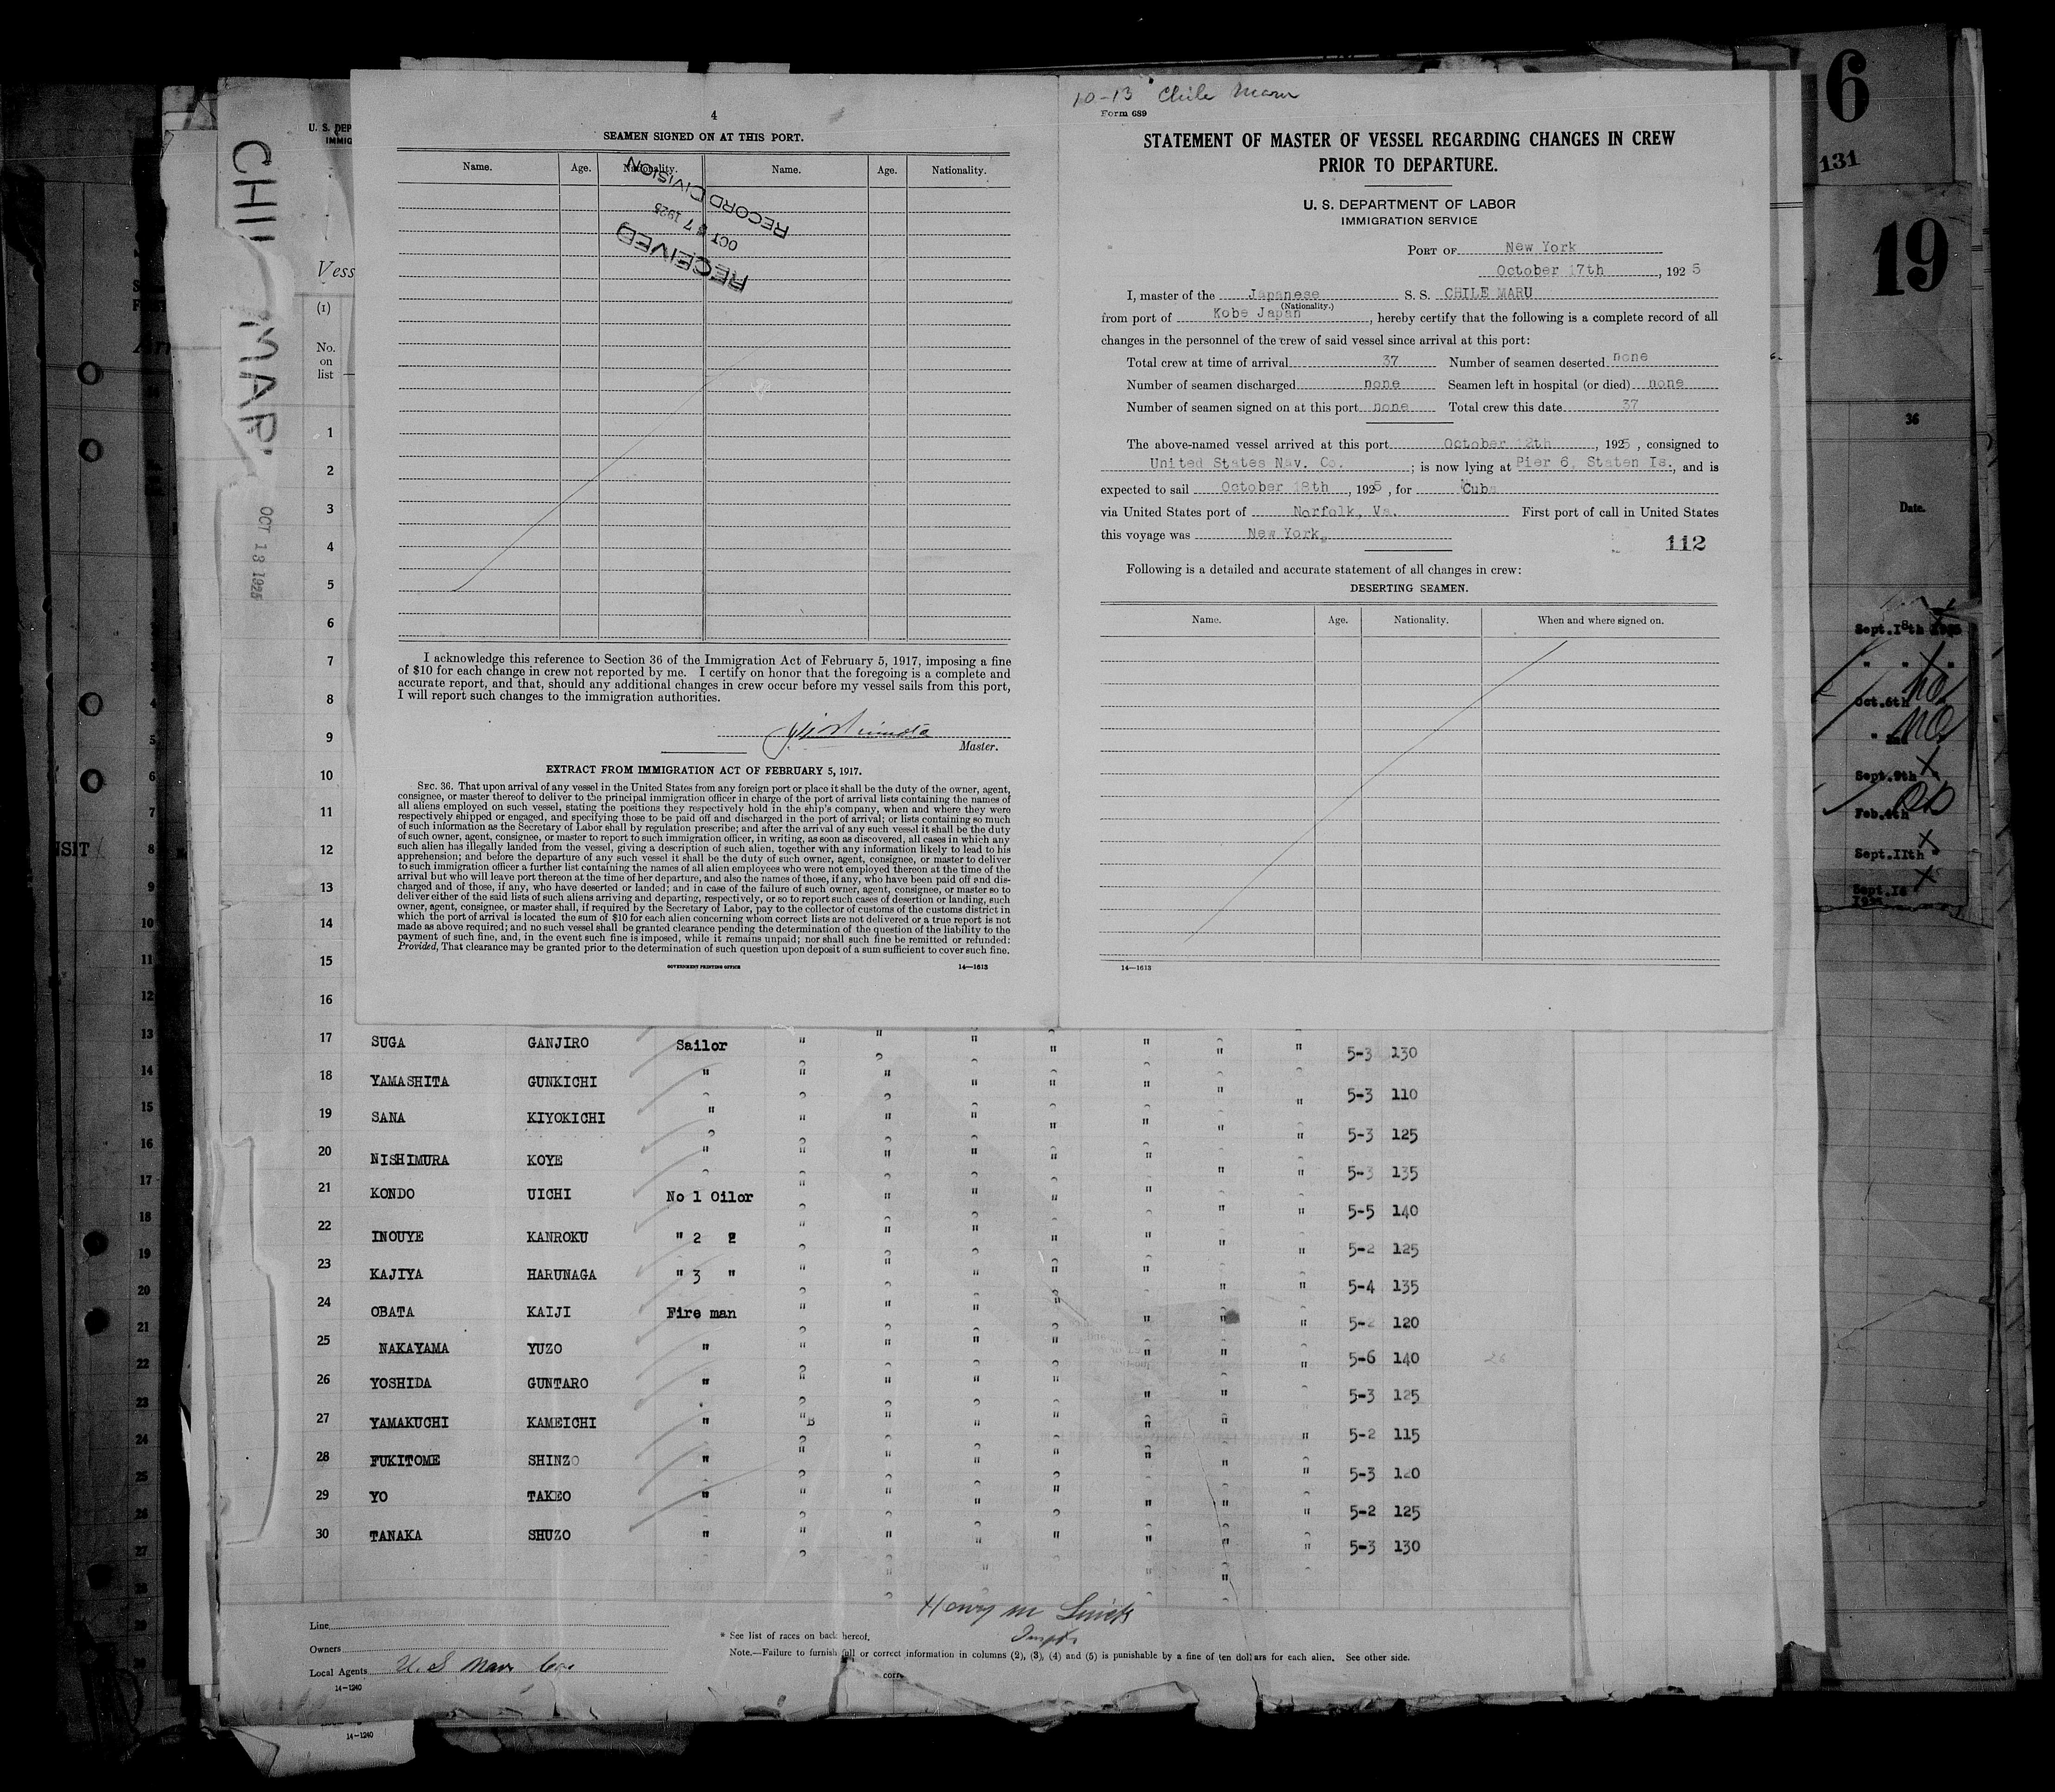 4
SEAMEN SIGNED ON AT THIS PORT.
Name. Age. Nationality. Name. Age. Nationality.
RECEIVED
OCT 1925
RECORD DIVISION
I acknowledge this reference to Section 36 of the Immigration Act of February 5, 1917, imposing a fine
of $10 for each change in crew not reported by me. I certify on honor that the foregoing is a complete and
accurate report, and that, should any additional changes in crew occur before my vessel sails from this port,
I will report such changes to the immigration authorities.
Master.
EXTRACT FROM IMMIGRATION ACT OF FEBRUARY 5, 1917.
SEC. 36. That upon arrival of any vessel in the United States from any foreign port or place it shall be the duty of the owner, agent,
consignee, or master thereof to deliver to the principal immigration officer in charge of the port of arrival lists containing the names of
all aliens employed on such vessel, stating the positions they respectively hold in the ship's company, when and where they were
respectively shipped or engaged, and specifying those to be paid off and discharged in the port of arrival; or lists containing so much
of such information as the Secretary of Labor shall by regulation prescribe; and after the arrival of any such vessel it shall be the duty
of such owner, agent, consignee, or master to report to such immigration officer, in writing, as soon as discovered, all cases in which any
such alien has illegally landed from the vessel, giving a description of such alien, together with any information likely to lead to his
apprehension; and before the departure of any such vessel it shall be the duty of such owner, agent, consignee, or master to deliver
to such immigration officer a further list containing the names of all alien employees who were not employed thereon at the time of the
arrival but who will leave port thereon at the time of her departure, and also the names of those, if any, who have been paid off and dis-
charged and of those, if any, who have deserted or landed; and in case of the failure of such owner, agent, consignee, or master so to
deliver either of the said lists of such aliens arriving and departing, respectively, or so to report such cases of desertion or landing, such
owner, agent, consignee, or master shall, if required by the Secretary of Labor, pay to the collector of customs of the customs district in
which the port of arrival is located the sum of $10 for each alien concerning whom correct lists are not delivered or a true report is not
made as above required; and no such vessel shall be granted clearance pending the determination of the question of the liability to the
payment of such fine, and, in the event such fine is imposed, while it remains unpaid; nor shall such fine be remitted or refunded:
Provided, That clearance may be granted prior to the determination of such question upon deposit of a sum sufficient to cover such fine.
GOVERNMENT PRINTING OFFICE 14—1613
10-13 Chile Maru
Form 689
STATEMENT OF MASTER OF VESSEL REGARDING CHANGES IN CREW
PRIOR TO DEPARTURE.
U. S. DEPARTMENT OF LABOR
IMMIGRATION SERVICE
PORT OF New York
October 17th, 1925
I, master of the Japanese S. S. CHILE MARU
(Nationality.)
from port of Kobe Japan, hereby certify that the following is a complete record of all
changes in the personnel of the crew of said vessel since arrival at this port:
Total crew at time of arrival 37 Number of seamen deserted none
Number of seamen discharged none Seamen left in hospital (or died) none
Number of seamen signed on at this port none Total crew this date 37
The above-named vessel arrived at this port October 12th, 1925, consigned to
United States Nav. Co.; is now lying at Pier 6, Staten Is., and is
expected to sail October 18th, 1925, for Cuba
via United States port of Norfolk, Va. First port of call in United States
this voyage was New York,
112
Following is a detailed and accurate statement of all changes in crew:
DESERTING SEAMEN.
Name. Age. Nationality. When and where signed on.
14—1613
U. S. DEP
IMMIG
CHIL MARU
OCT 13 1925
Vess
(1)
No.
on
list
1
2
3
4
5
6
7
8
9
10
11
12
13
14
15
16
17 SUGA GANJIRO Sailor " " " " " " " 5-3 130
18 YAMASHITA GUNKICHI " " " " " " " " 5-3 110
19 SANA KIYOKICHI " " " " " " " " 5-3 125
20 NISHIMURA KOYE " " " " " " " " 5-3 135
21 KONDO UICHI No 1 Oilor " " " " " " " 5-5 140
22 INOUYE KANROKU " 2 " " " " " " " 5-2 125
23 KAJIYA HARUNAGA " 3 " " " " " " " " 5-4 135
24 OBATA KAIJI Fire man " " " " " " " 5-2 120
25 NAKAYAMA YUZO " " " " " " " " 5-6 140
26 YOSHIDA GUNTARO " " " " " " " 5-3 125
27 YAMAKUCHI KAMEICHI " " " " " " " " 5-2 115
28 FUKITOME SHINZO " " " " " " " " 5-3 120
29 YO TAKEO " " " " " " " " 5-2 125
30 TANAKA SHUZO " " " " " " " " 5-3 130
Line
Owners
Local Agents U. S. Nav. Co.
14-1240
* See list of races on back hereof.
Note.—Failure to furnish full or correct information in columns (2), (3), (4) and (5) is punishable by a fine of ten dollars for each alien. See other side.
14-1240
6
131
19
36
Date.
Sept.18th
Oct.6th no
no
Sept.9th
Feb.4th
Sept.11th
Sept.18
NSIT